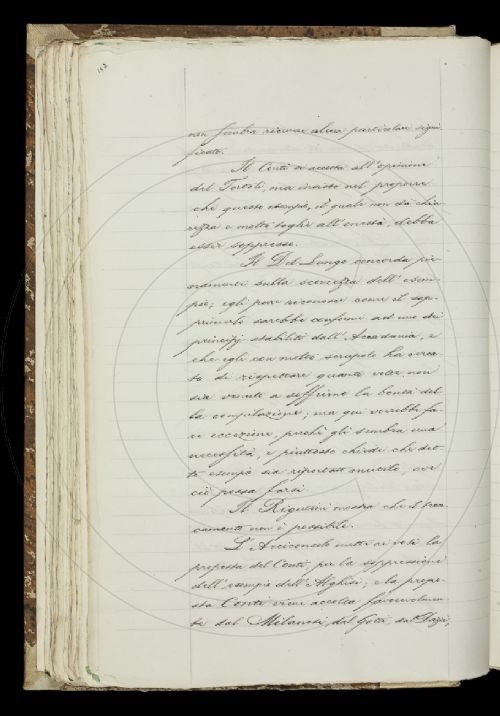 142
non sembra ricever alcun particolare signi
ficato.
Il Conti si accosta all'opinione
del Tortoli, ma insiste nel proporre
che questo esempio, il quale non dà chia
rezza e molto toglie all'onestà, debba
esser soppresso.
Il Del Lungo concorda pie
namente sulla sconcezza dell'esem
pio; egli pure riconosce come il sop
primerlo sarebbe conforme ad uno dei
principj stabiliti dall'Accademia, e
che egli con molto scrupolo ha cerca
to di rispettare quante volte non
sia venuta a soffrirne la bontà del
la compilazione; ma qui vorrebbe fa
re eccezione, perchè gli sembra una
necessità, e piuttosto chiede che det
to esempio sia riportato mutilo, ove
ciò possa farsi.
Il Rigutini mostra che il tron
camento non è possibile.
L'Arciconsolo mette ai voti la
proposta del Conti, per la soppressione
dell'esempio dell'Alghisi; e la propo
sta Conti viene accolta favorevolmen
te dal Milanesi, dal Gotti, dal Dazzi,